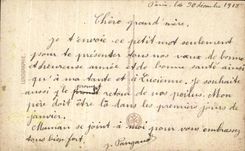 Paris, le 30 décembre 1915
Chère grand'mère,
Je t'envoie ce petit mot seulement
pour te présenter tous nos vœux de bonne
et heureuse année et de bonne santé ainsi
qu'à ma tante et à Lucienne. Je souhaite
aussi le prompt retour de nos poilus. Mon
père doit être là dans les premiers jours de
janvier.
Maman se joint à moi pour vous embrasser
tous bien fort.